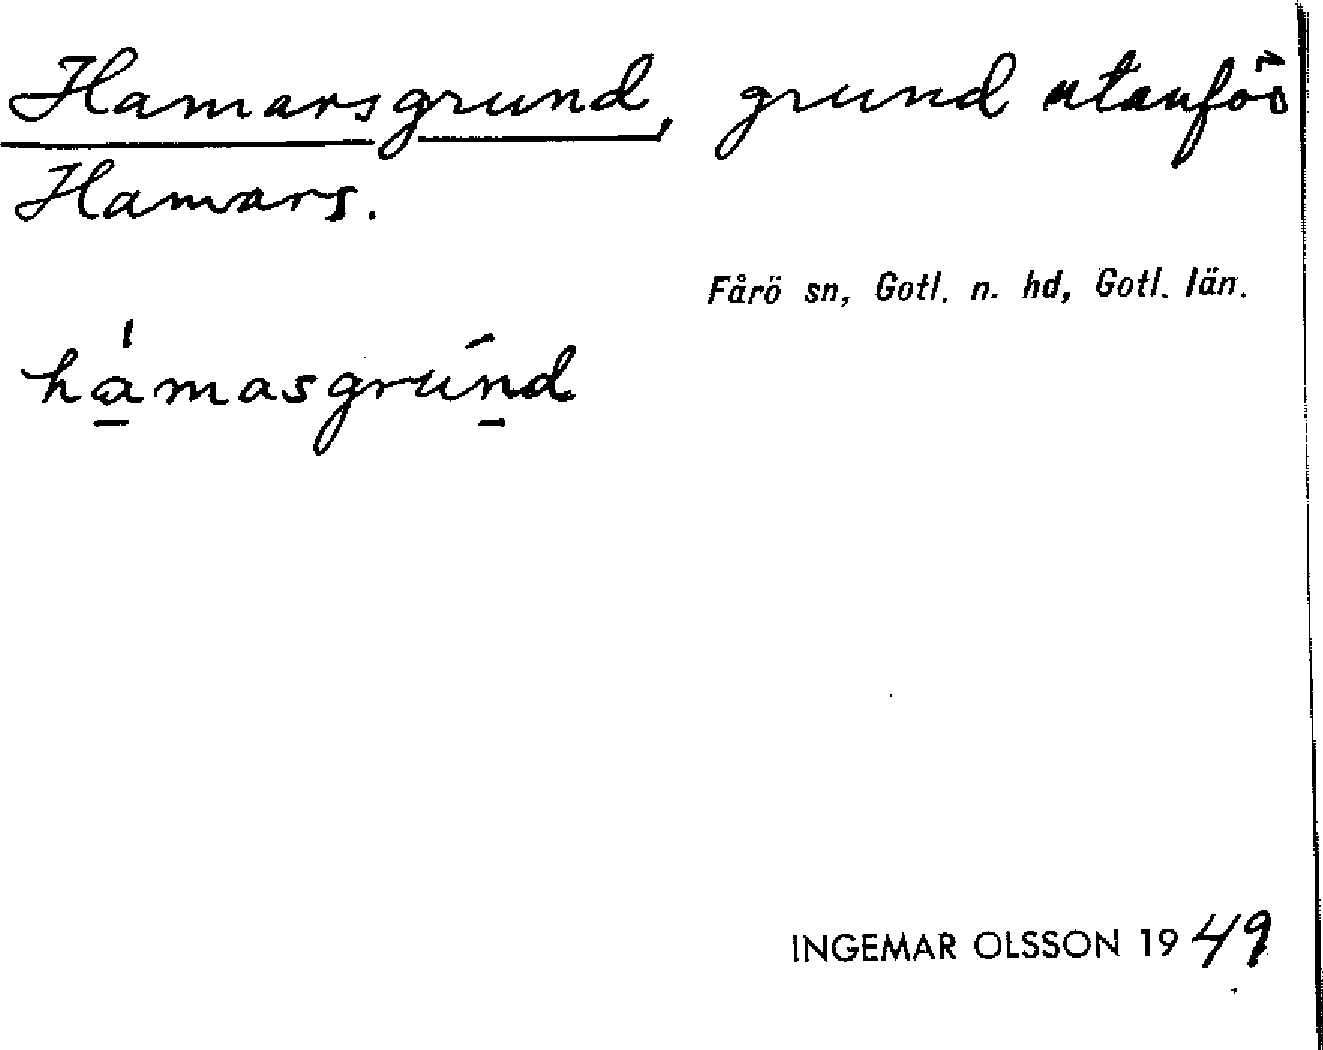 Hamarsgrund, grund utanför
Hamars.
Fårö sn, Gotl. n. hd, Gotl. län.
há̠masgrún̠d
INGEMAR OLSSON 1949